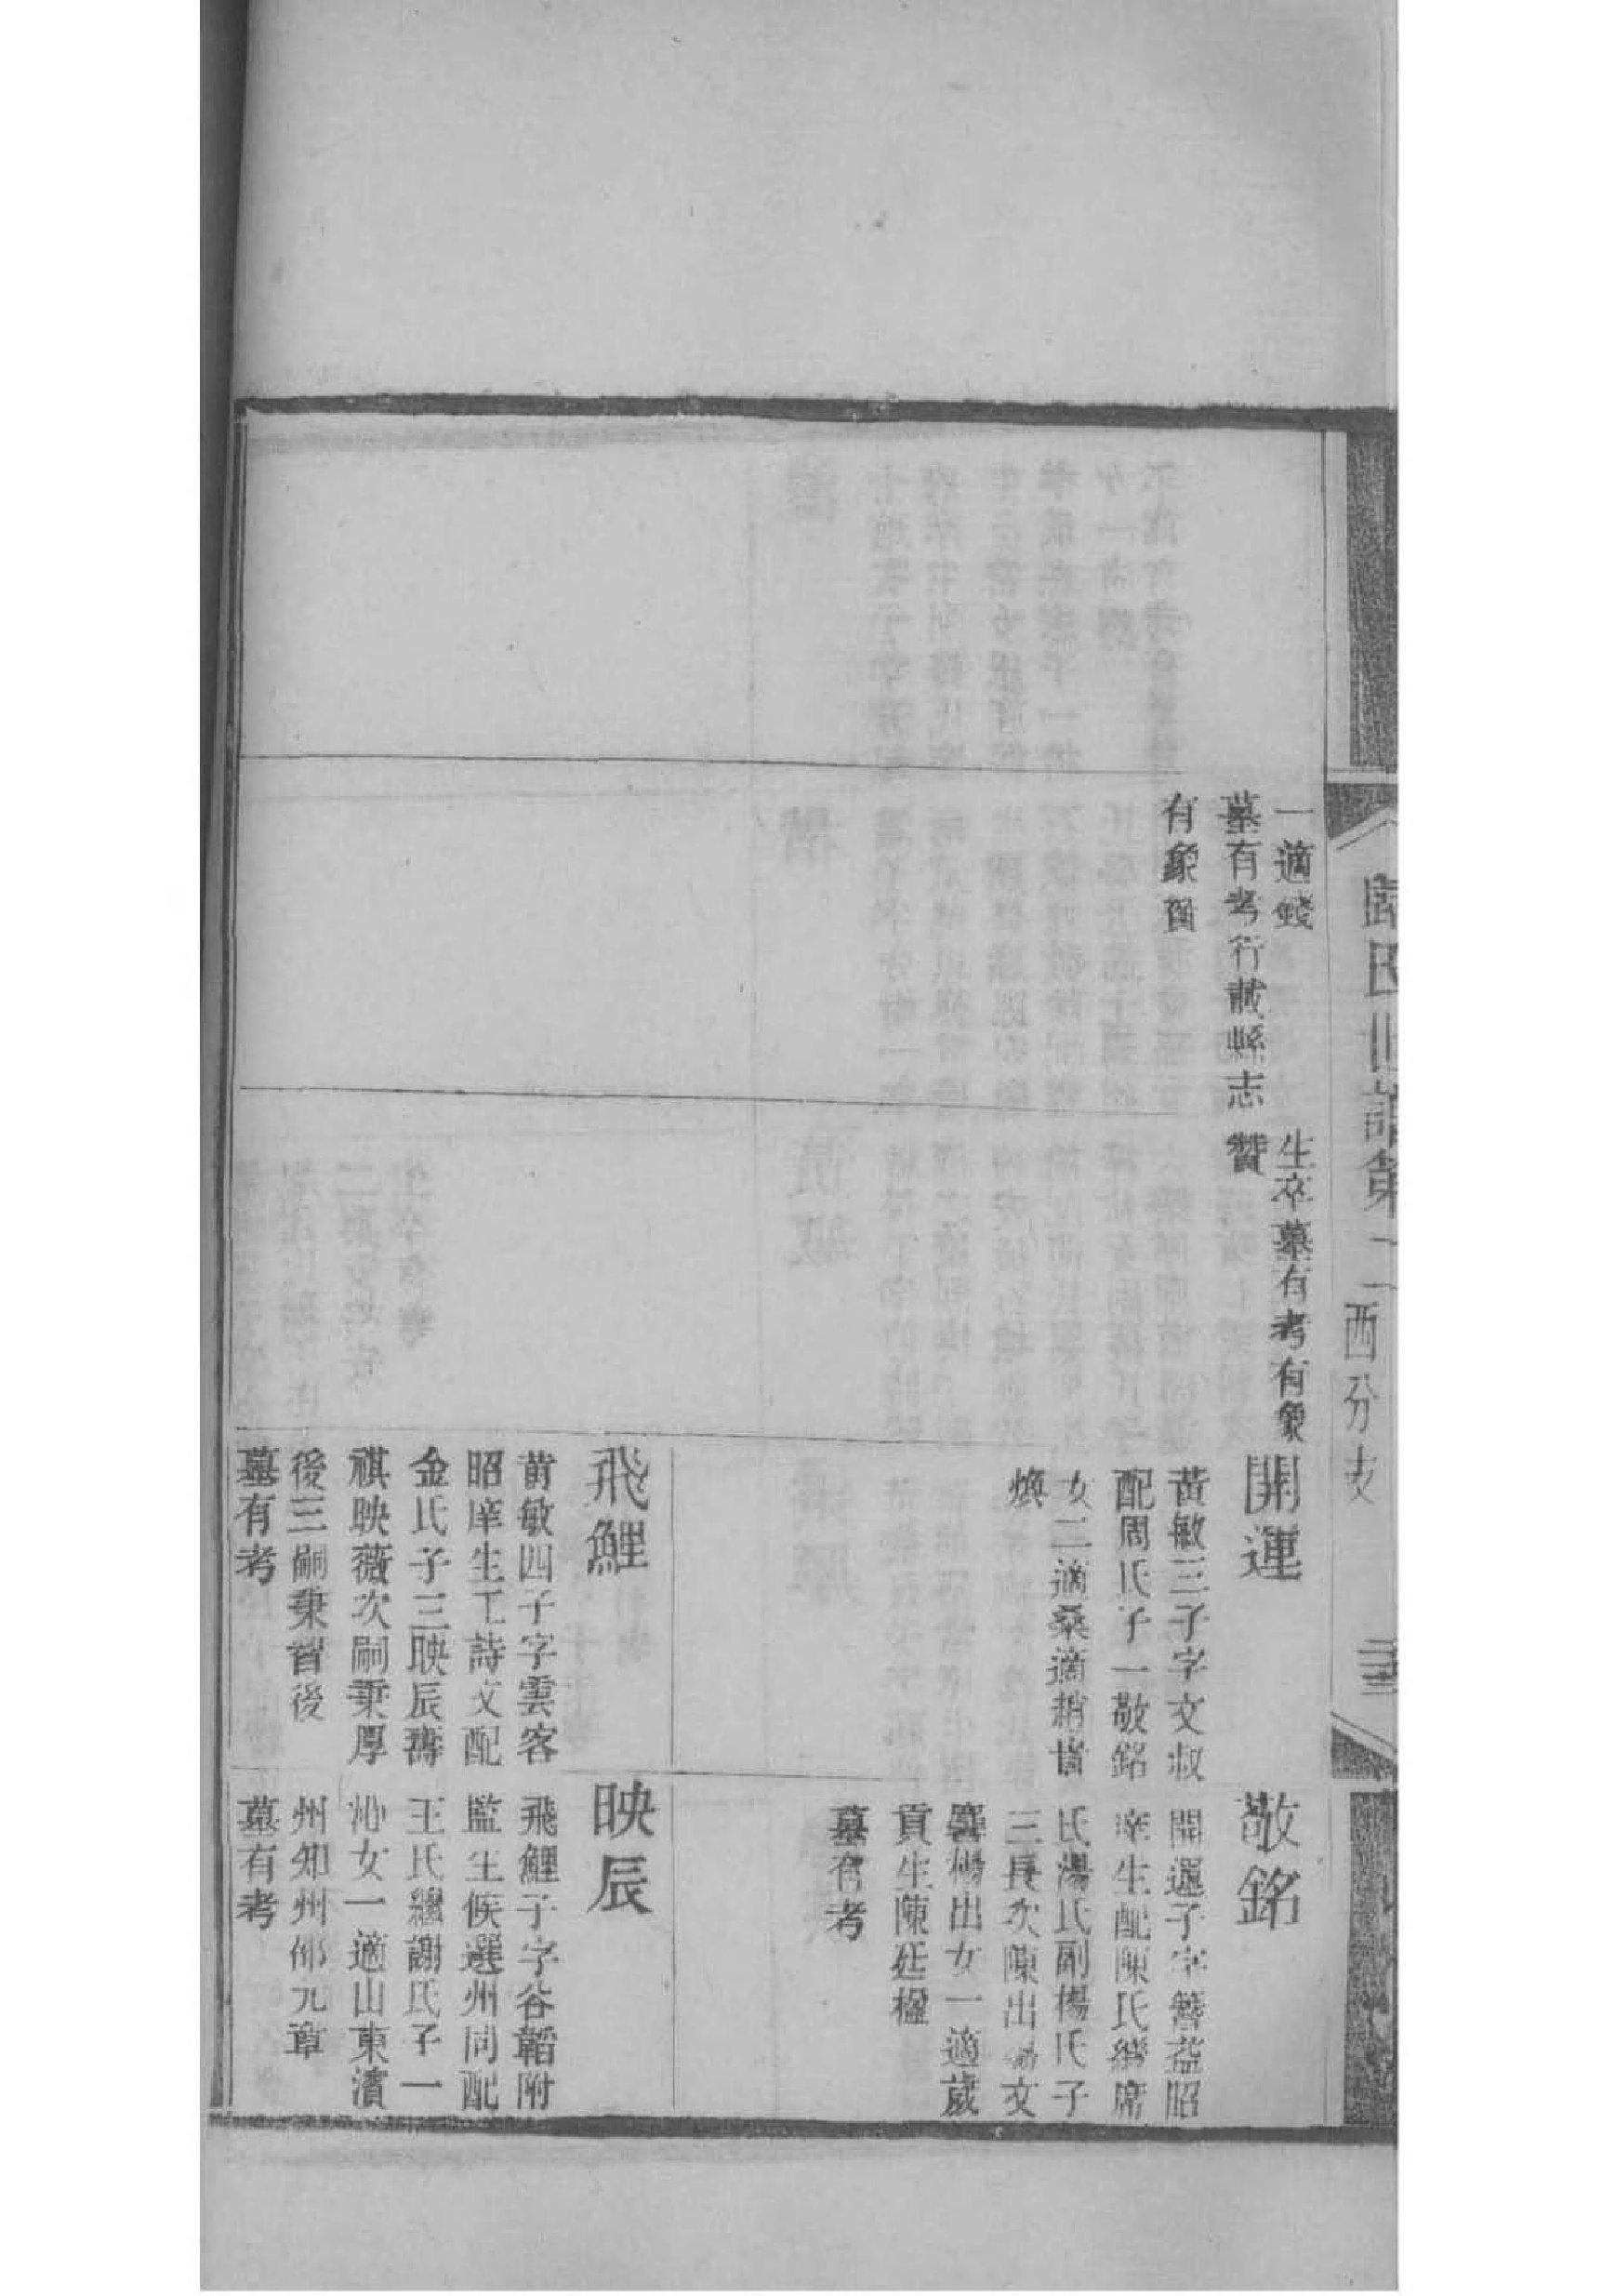 氏世譜第一
西分支
一適錢
墓有考行載縣志
有象贊
生卒墓有考有象
贊
開運
黃敏三子字文叔
配周氏子一敬銘
女二適桑適趙
煥
敬銘
開運子字磐益昭
庠生配陳氏繼席
氏湯氏副楊氏子
三長次陳出湯文
楊出女一適歲
貢生陳廷楹
墓有考
飛鯉
黃敏四子字雲客
昭庠生工詩文配
金氏子三映辰壽
祺映薇次嗣秉厚
後三嗣秉智後
墓有考
映辰
飛鯉子字谷韜附
監生候選州同配
王氏繼謝氏子一
沁女一適山東濱
州知州邰元章
墓有考